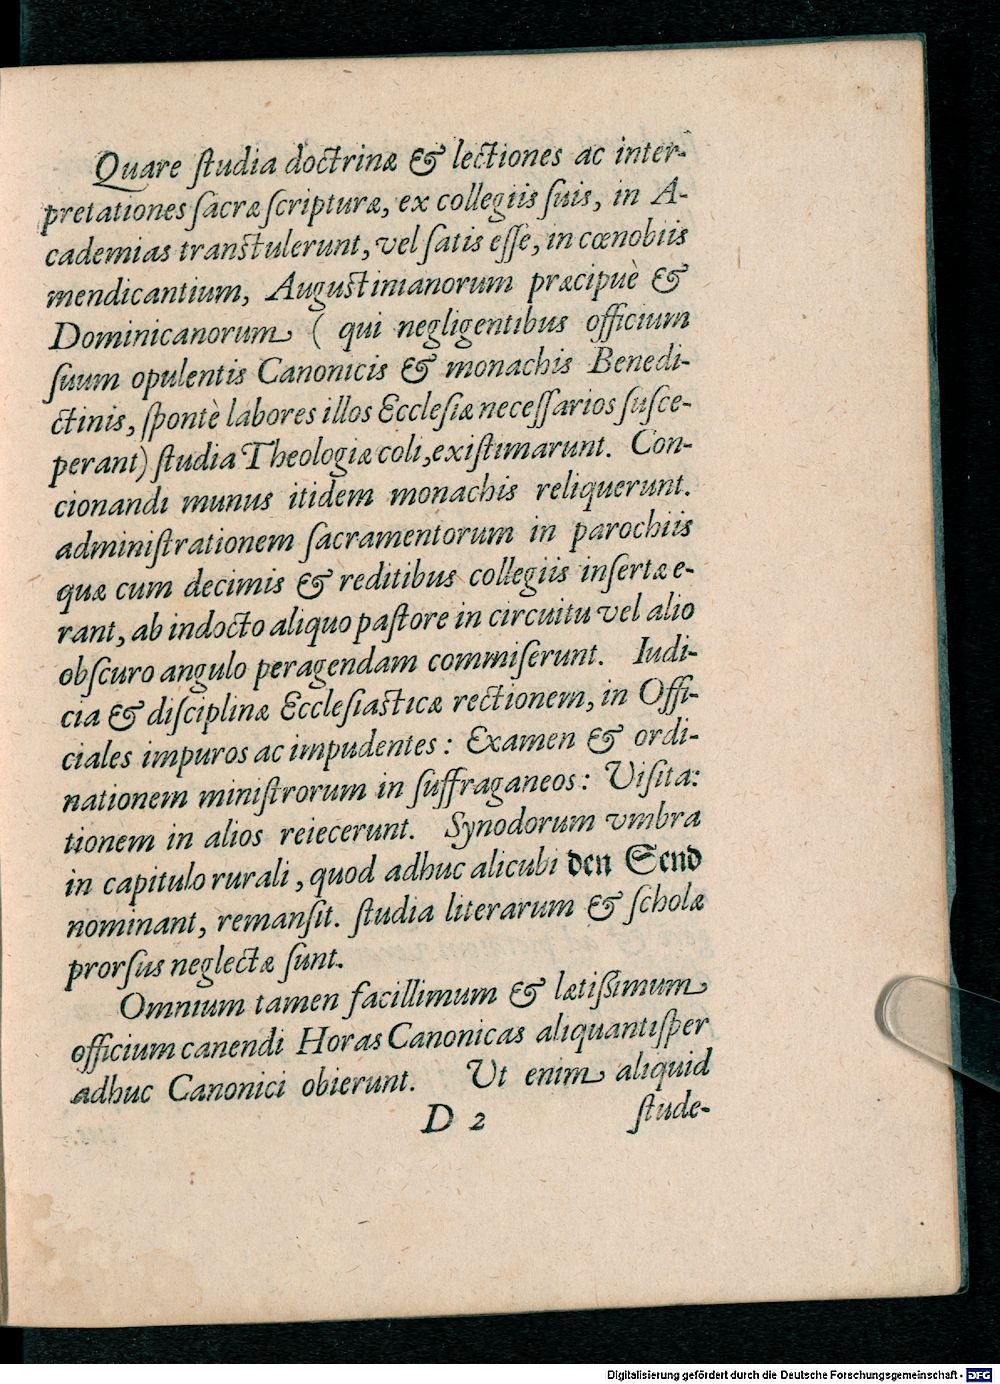 Quare ſtudia doctrinæ & lectiones ac inter-
pretationes ſacræ ſcripturæ, ex collegiis ſuis, in A-
cademias transtulerunt, vel ſatis eſſe, in cœnobiis
mendicantium, Augustinianorum præcipuè &
Dominicanorum ( qui negligentibus officium
ſuum opulentis Canonicis & monachis Benedi-
ctinis, ſpontè labores illos Eccleſiæ neceſſarios ſuſce-
perant) ſtudia Theologiæ coli, exiſtimarunt. Con-
cionandi munus itidem monachis reliquerunt.
adminiſtrationem ſacramentorum in parochiis
quæ cum decimis & reditibus collegiis inſertæ e-
rant, ab indocto aliquo paſtore in circuitu vel alio
obſcuro angulo peragendam commiſerunt. Iudi-
cia & diſciplinæ Eccleſiasticæ rectionem, in Offi-
ciales impuros ac impudentes: Examen & ordi-
nationem miniſtrorum in ſuffraganeos: Viſita:
tionem in alios reiecerunt. Synodorum vmbra
in capitulo rurali, quod adhuc alicubi den Send
nominant, remanſit. ſtudia literarum & ſcholæ
prorſus neglectæ ſunt.
Omnium tamen facillimum & lætißimum
officium canendi Horas Canonicas aliquantiſper
adhuc Canonici obierunt. Ut enim aliquid
D 2 ſtude-
Digitalisierung gefördert durch die Deutsche Forschungsgemeinschaft - DFG